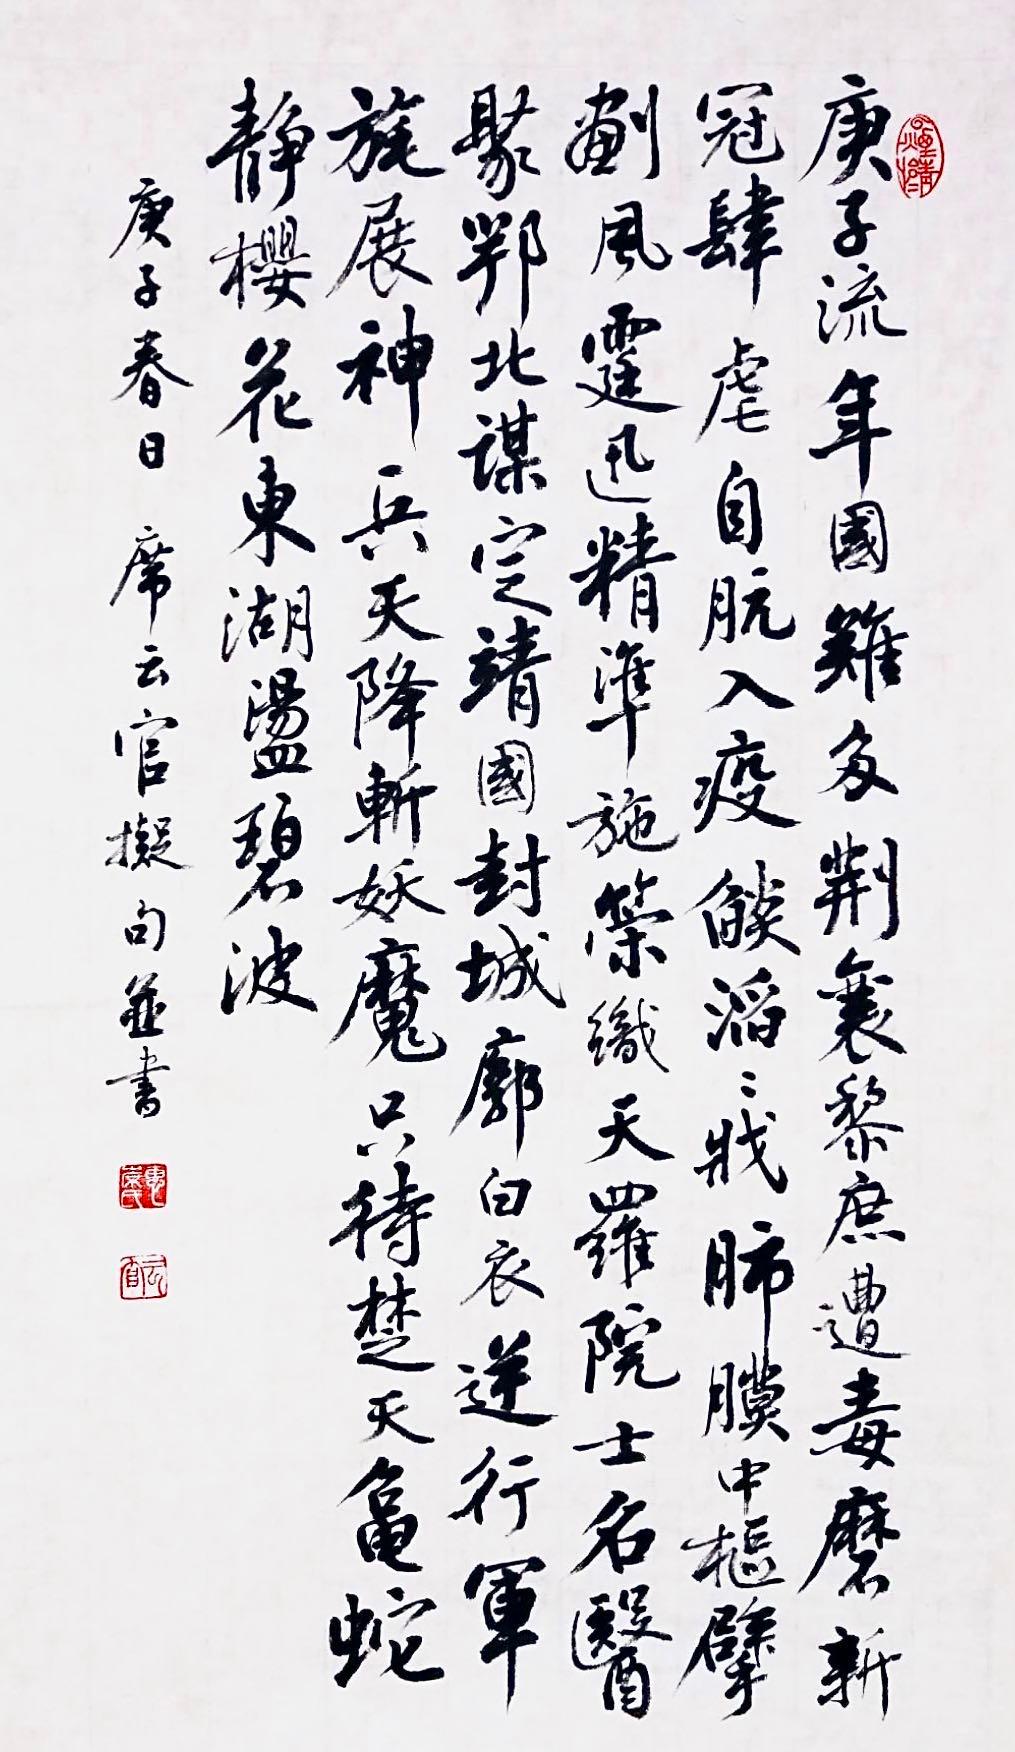 庚子流年國難多荆襄黎庶遭毒磨新
冠肆虐自肮入疫餤滔〻戕肺膜中樞擘
劃風霆迅精準施策織天羅院士名醫
聚鄂北謀定靖國封城廓白衣逆行軍
旄展神兵天降斬妖魔只待楚天龜蛇
靜櫻花東湖盪碧波
庚子春日 席云官擬句並書